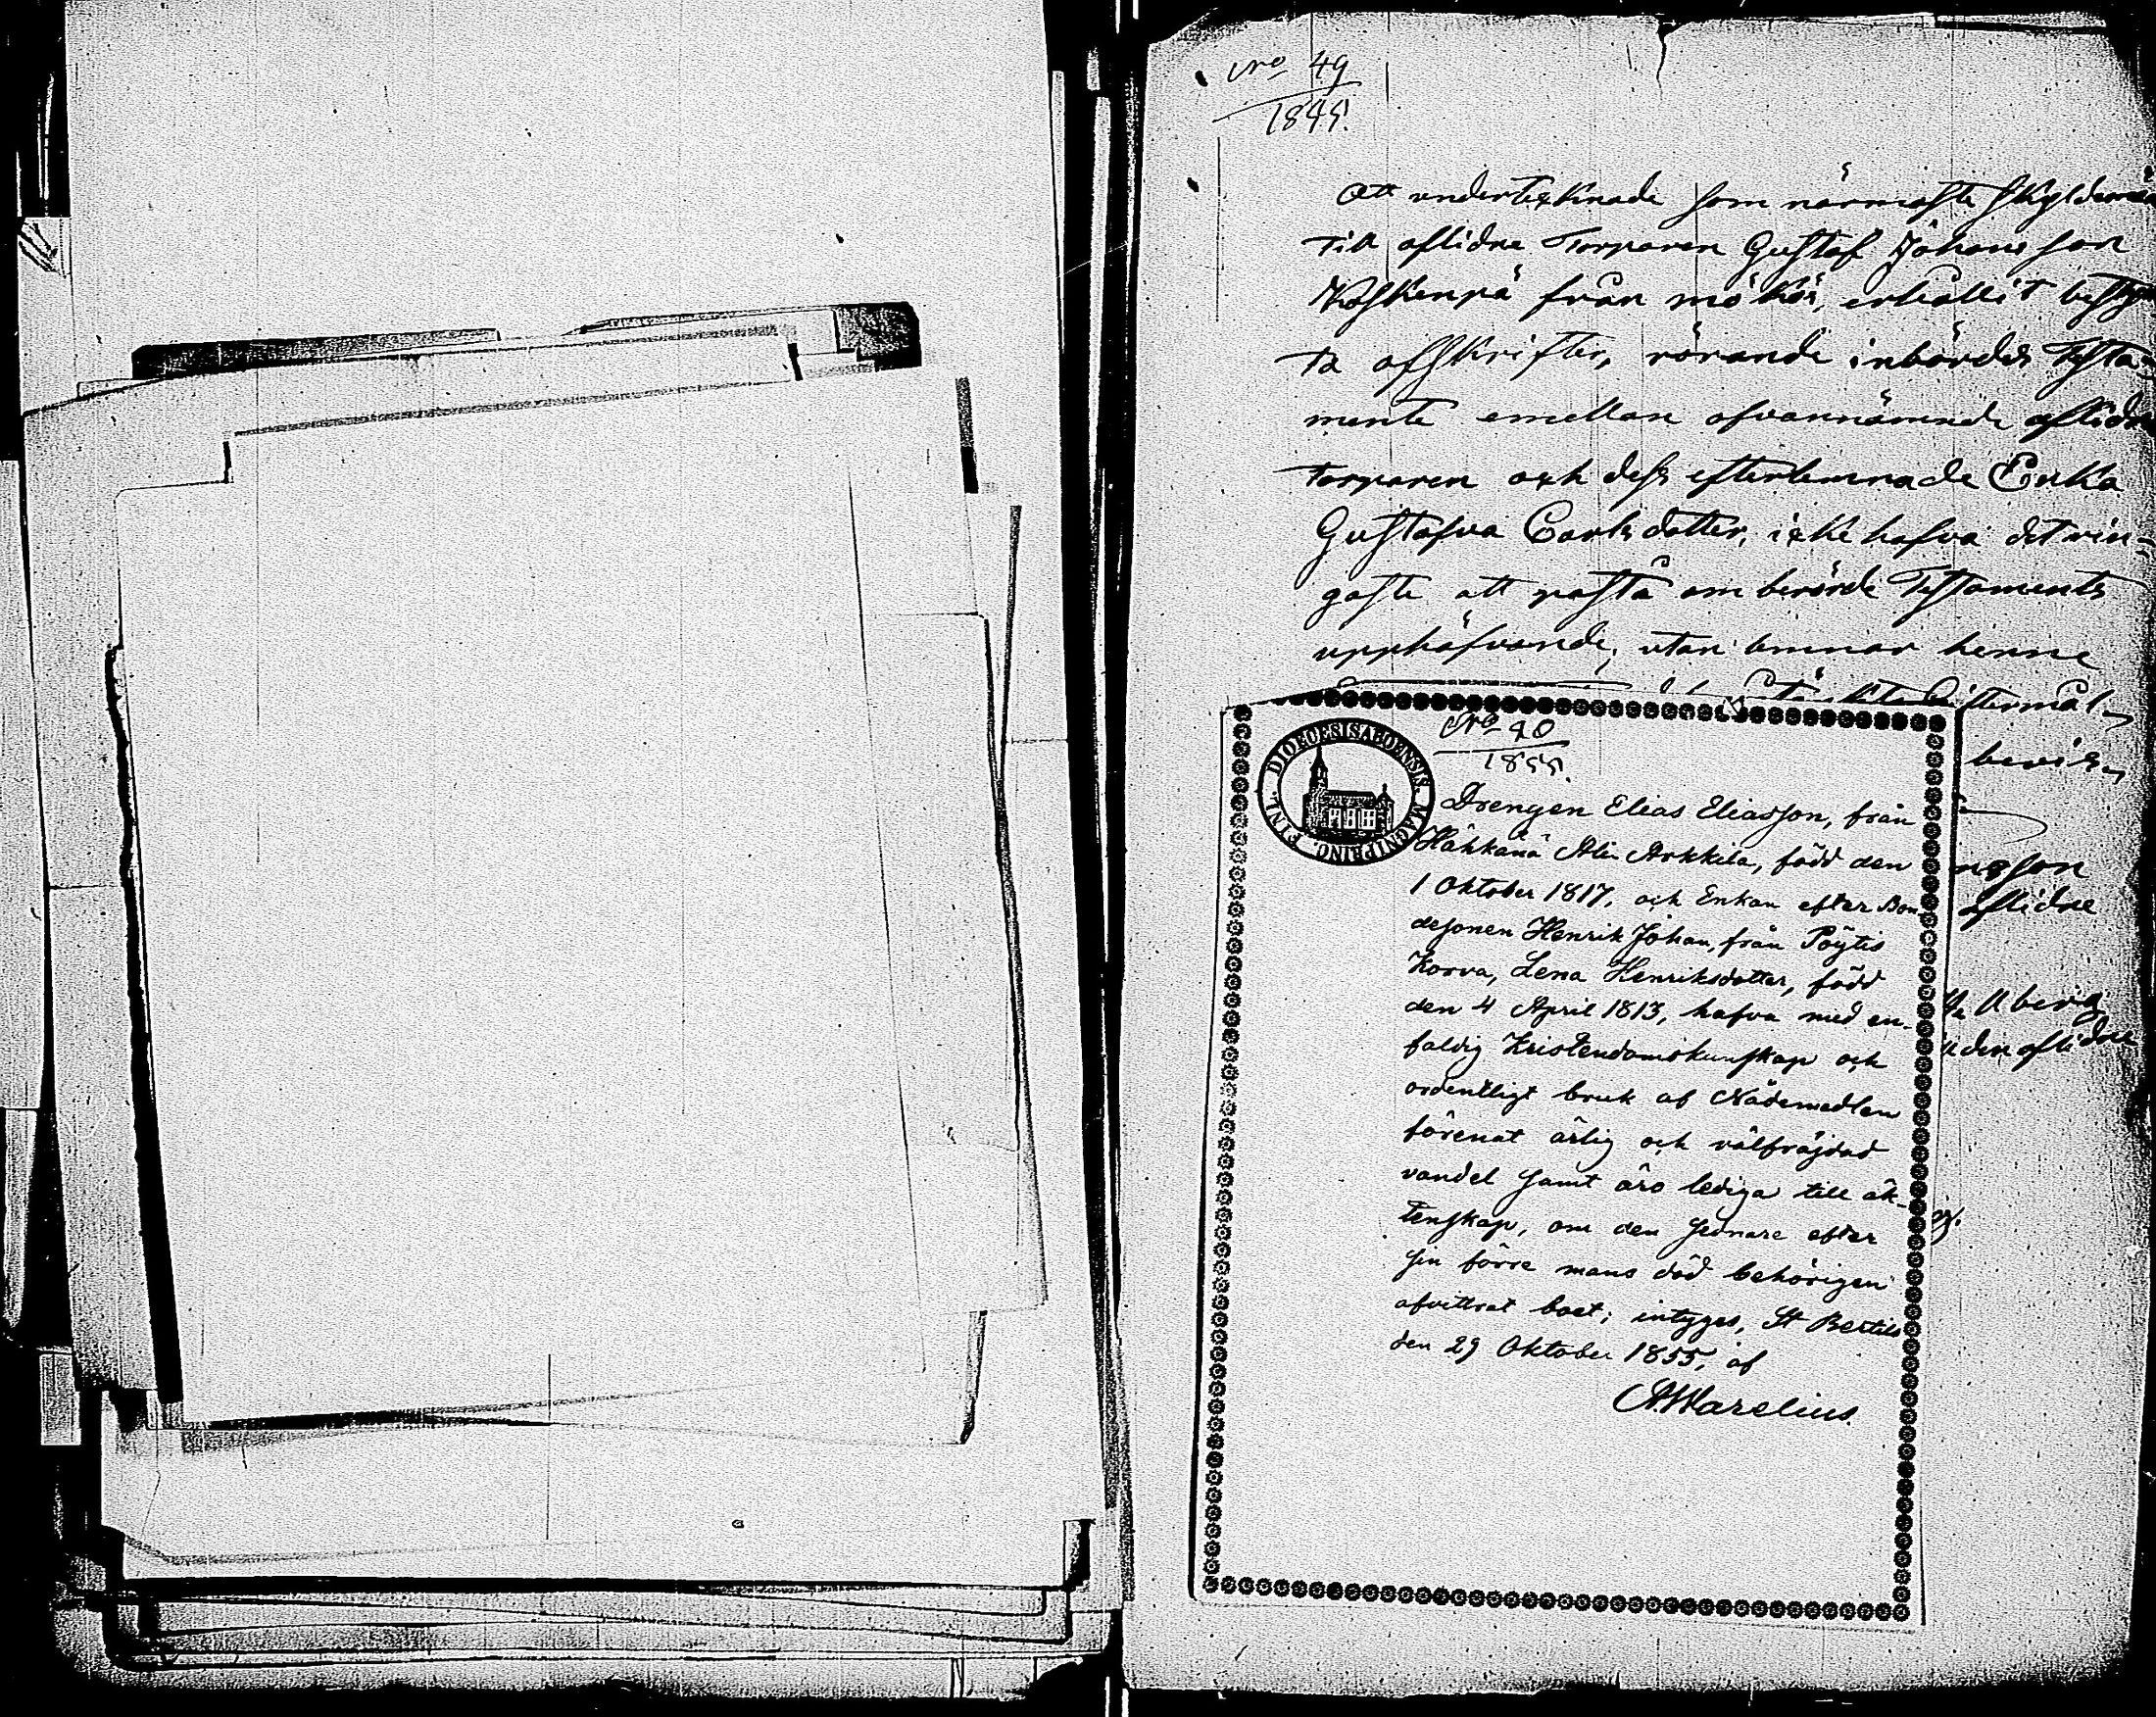 No 49
1855.
Att undertecknade som närmaste skyldemän
till aflidne Torparen Gustaf Johansson
Koskenpä från mökör, erhållit bestyrk
ta afskrifter, rörande inbördes Testa-
mente emellan ofvannämnde aflidne
torparen och dess efterlemnade Enka
Gustafva Carlsdotter, icke hafva det rin-
gaste att påstå om berörde Testaments
upphäfvande, utan lemnar henne
bevis,
aflidne
den aflidne
No 40
1855.
DIOECESIS ABOENSIS. MAGNI PRINC. FINL.
Drengen Elias Eliasson, från
Häkkänä Ali Arkkila, född den
1 Oktober 1817, och Enkan efter Bon
desonen Henrik Johan, från Pöytis
Korva, Lena Henriksdotter, född
den 4 April 1813, hafva med en-
faldig Kristendomskunskap och
ordentligt bruk af Nådemedlen
förenat ärlig och välfräjdad
vandel samt äro lediga till äk
tenskap, om den sednare efter
sin förre mans död behörigen
afvittrat boet; intygas, St Bertils
den 29 Oktober 1855, af
A Warelius.